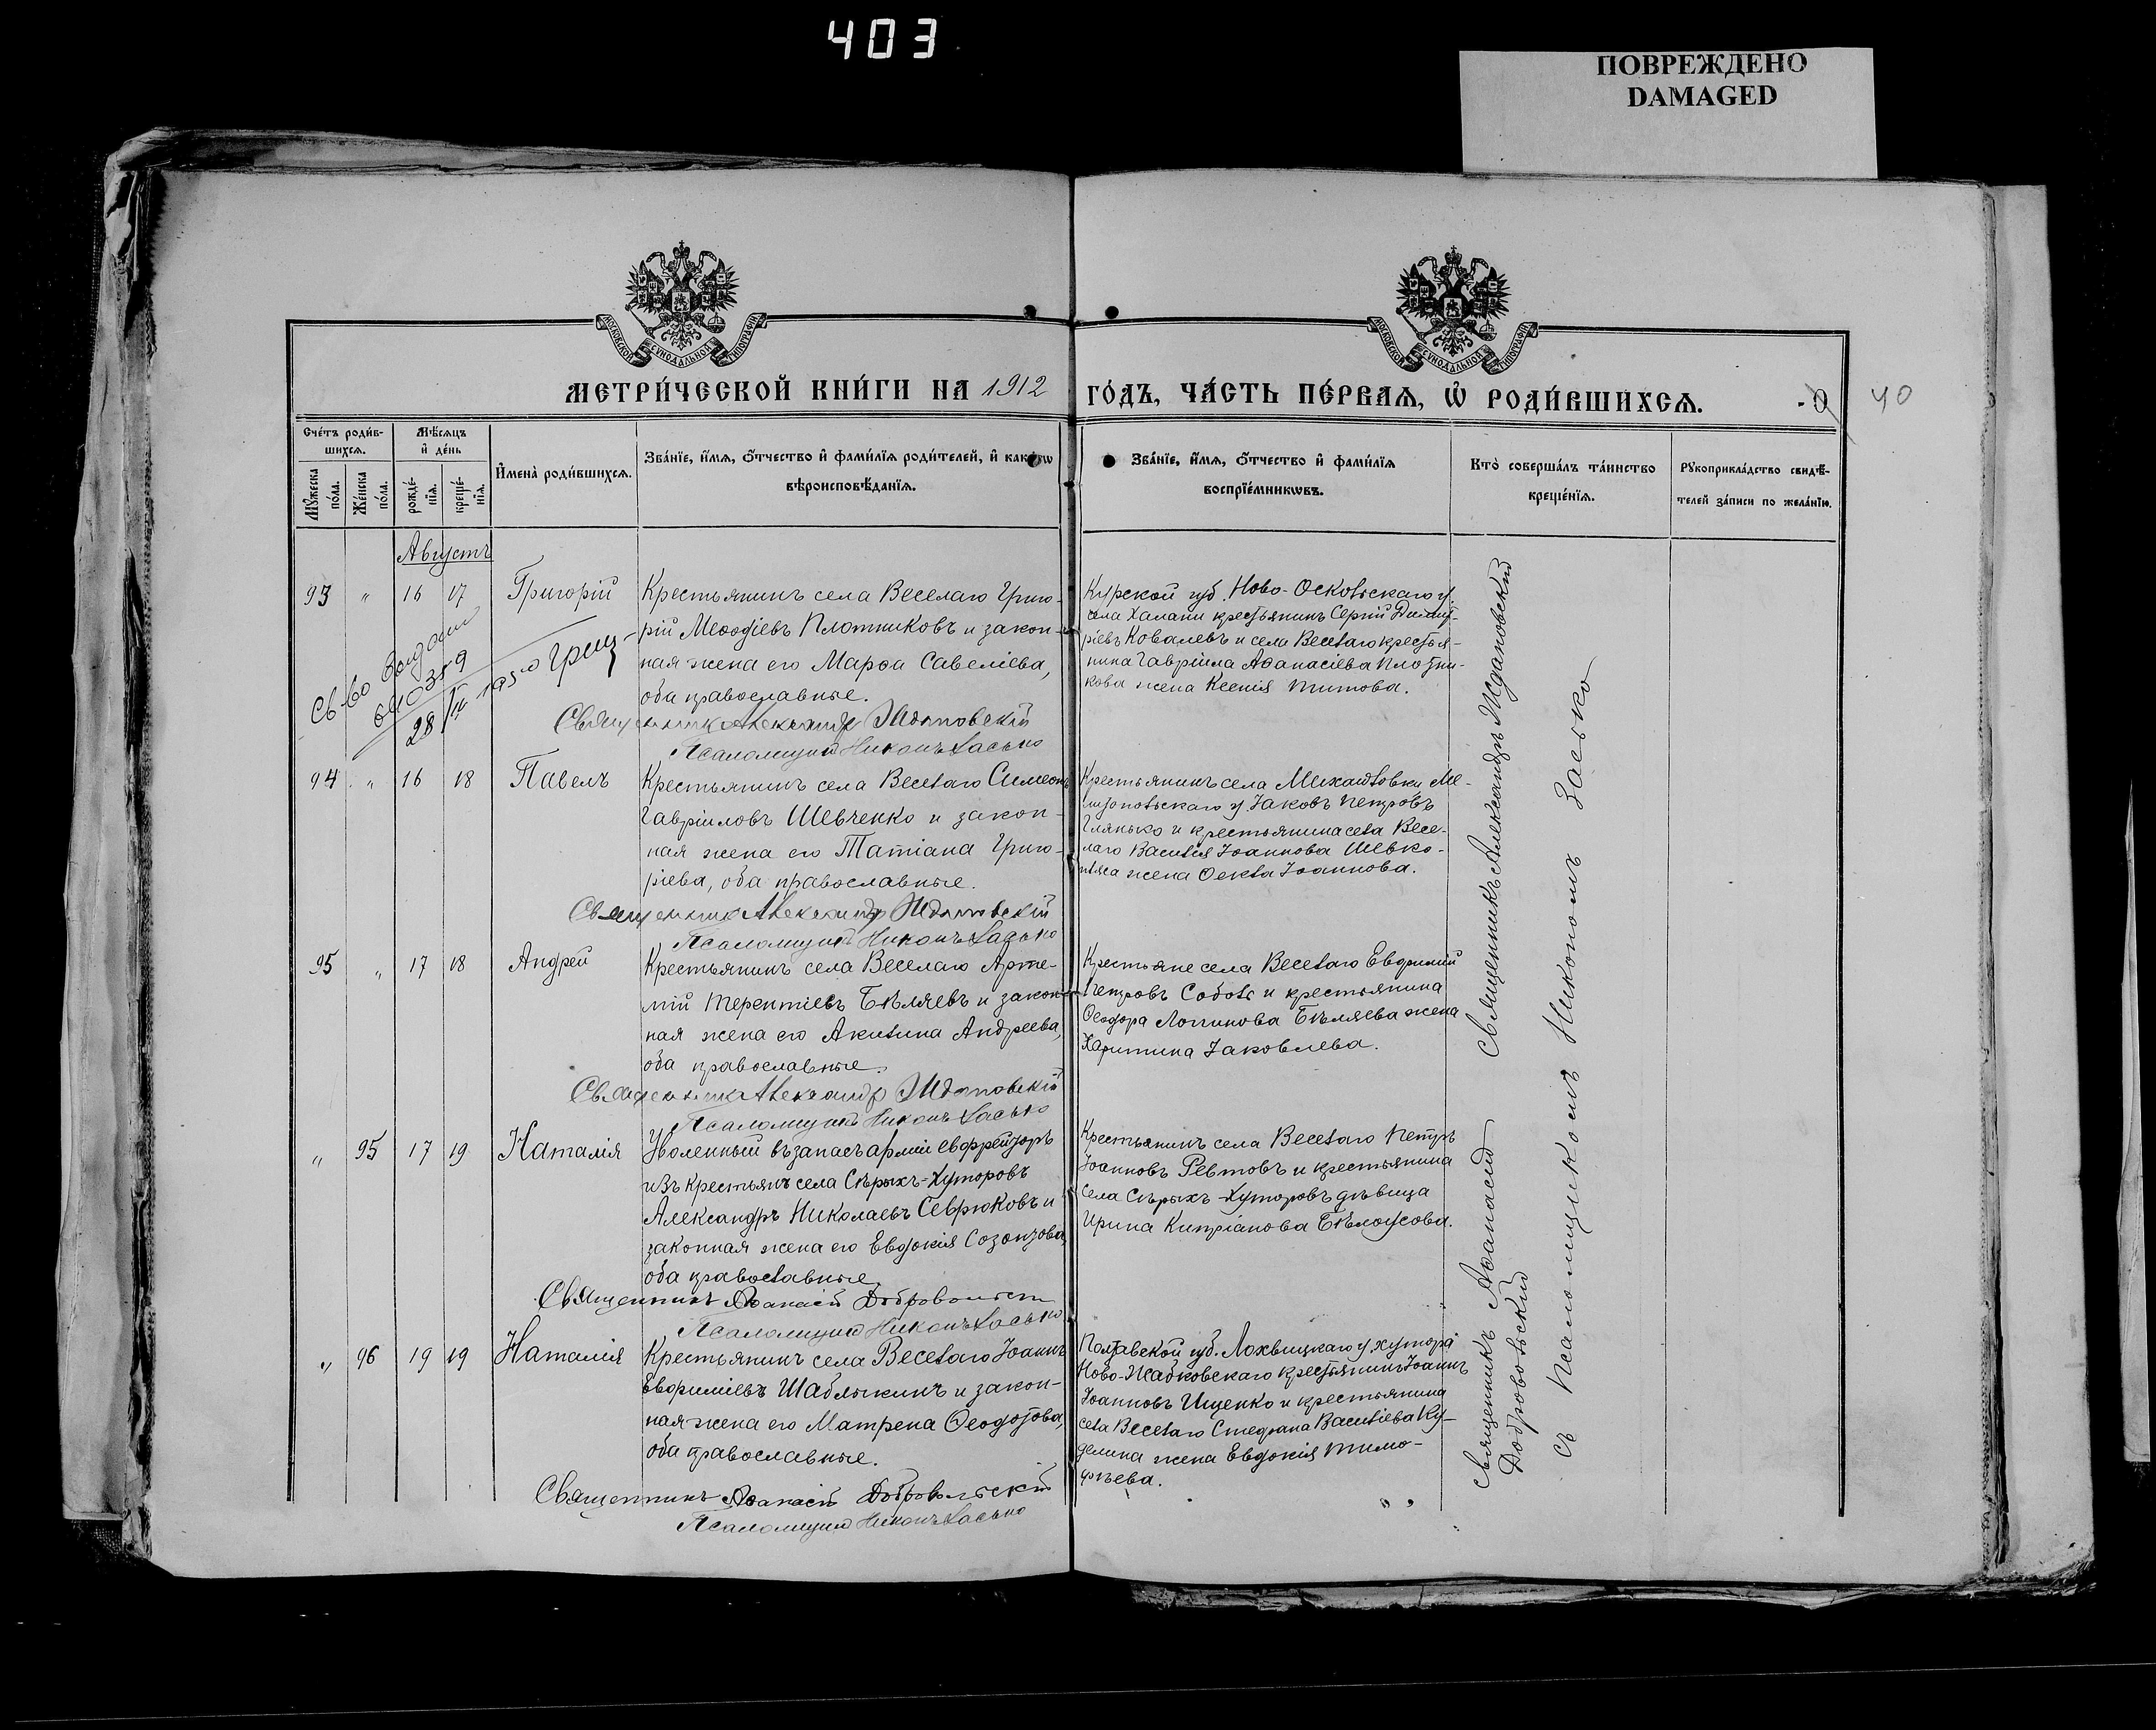 403
ПОВРЕЖДЕНО
DAMAGED
МОСКОВСКОЙ СУНОДАЛЬНОЙ ТИПОГРАФІИ
МОСКОВСКОЙ СУНОДАЛЬНОЙ ТИПОГРАФІИ
МЕТРИ́ЧЕСКОЙ КНИ́ГИ НА 1912 ГО́ДЪ, ЧА́СТЬ ПЕ́РВАѦ, Ѡ҆ РОДИ́ВШИХСѦ.
40
Сче́тъ роди́в-
шихсѧ.
Мꙋ́жеска по́ла.
Же́нска по́ла.
Мѣ́сѧцъ
и҆ де́нь
рожде́-
нїѧ.
креще́-
нїѧ.
И҆мена̀ роди́вшихсѧ.
Зва́нїе, и҆́мѧ, ѻ҆́тчество и҆ фами́лїѧ роди́телей, и҆ како́гѡ
вѣроисповѣ́данїѧ.
Зва́нїе, и҆́мѧ, ѻ҆́тчество и҆ фами́лїѧ
воспрїе́мникѡвъ.
Кто̀ соверша́лъ та́инство
креще́нїѧ.
Рꙋкоприкла́дство свидѣ́-
телей за́писи по жела́нїю.
Августъ
93 " 16 17 Григорій
Крестьянинъ села Веселаго Григо-
рій Меѳодіевъ Плотниковъ и закон-
ная жена его Марѳа Савеліева,
оба православные.
Священникъ Александр Ждановскій
Псаломщикъ Никонъ Засько
Св-во выдано
28
Курской губ. Ново-Оскольскаго у.
села Халани крестьянинъ Сергій Димит-
ріевъ Ковалевъ и села Веселаго крестья-
нина Гавріила Аѳанасіева Плотни-
кова жена Ксенія Титова.
94 " 16 18 Павелъ
Крестьянинъ села Веселаго Симеонъ
Гавріиловъ Шевченко и закон-
ная жена его Татіана Григо-
ріева, оба православные.
Священникъ Александр Ждановскій
Псаломщикъ Никонъ Засько
Крестьянинъ села Михайловки Ме-
литопольскаго у. Іаковъ Петровъ
Глянько и крестьянина села Весе-
лаго Василія Іоаннова Шевко-
пляса жена Ѳекла Іоаннова.
95 " 17 18 Андрей
Крестьянинъ села Веселаго Арте-
мій Терентіевъ Бѣляевъ и закон-
ная жена его Акилина Андреева,
оба православные.
Священникъ Александр Ждановскій
Псаломщикъ Никонъ Засько
Крестьяне села Веселаго Евфимій
Петровъ Соболь и крестьянина
Ѳеодора Логинова Бѣляева жена
Харитина Іаковлева.
" 95 17 19 Наталія
Уволенный въ запасъ арміи ефрейторъ
изъ крестьянъ села Сѣрыхъ-Хуторовъ
Александръ Николаевъ Севрюковъ и
законная жена его Евдокія Созонтова,
оба православные.
Священникъ Аѳанасій Добровольскій
Псаломщикъ Никонъ Засько
Крестьянинъ села Веселаго Петръ
Іоанновъ Ревтовъ и крестьянина
села Сѣрыхъ-Хуторовъ дѣвица
Ирина Кипріанова Бѣлоусова.
" 96 19 19 Наталія
Крестьянинъ села Веселаго Іоаннъ
Евфиміевъ Шаблыкинъ и закон-
ная жена его Матрена Ѳеодотова,
оба православные.
Священникъ Аѳанасій Добровольскій
Псаломщикъ Никонъ Засько
Полтавской губ. Лохвицкаго у. хутора
Ново-Жабковскаго крестьянинъ Іоаннъ
Іоанновъ Ищенко и крестьянина
села Веселаго Стефана Василіева Ку-
делина жена Евдокія Тимо-
фѣева.
Священникъ Александръ Ждановскій
Священникъ Аѳанасій
Добровольскій
съ Псаломщикомъ Никономъ Засько